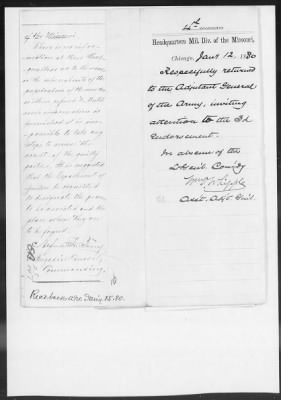 of the Missouri.
There is no infor-
mation at these Head-
quarters as to the names
or the whereabouts of the
of the men
within referred to. Until
some information is
furnished it is im-
possible to take any
steps to secure the
arrest of the guilty
parties. It is suggested
that the Department of
Justice be requested
to designate the persons
to be arrested and the
place where they are
to be found.
Brigadier General
Commanding.
Recd back A.G.O. Jan'y 15, 80.
4th
Headquarters Mil. Div. of the Missouri,
Chicago, Jan'y 12, 1880
Respectfully returned
to the Adjutant General
of the Army, inviting
attention to the 3d
Endorsement.
In absence of the
Lieut. Gen'l Comd'g
Wm D. Whipple
Asst. Adjt. Genl.